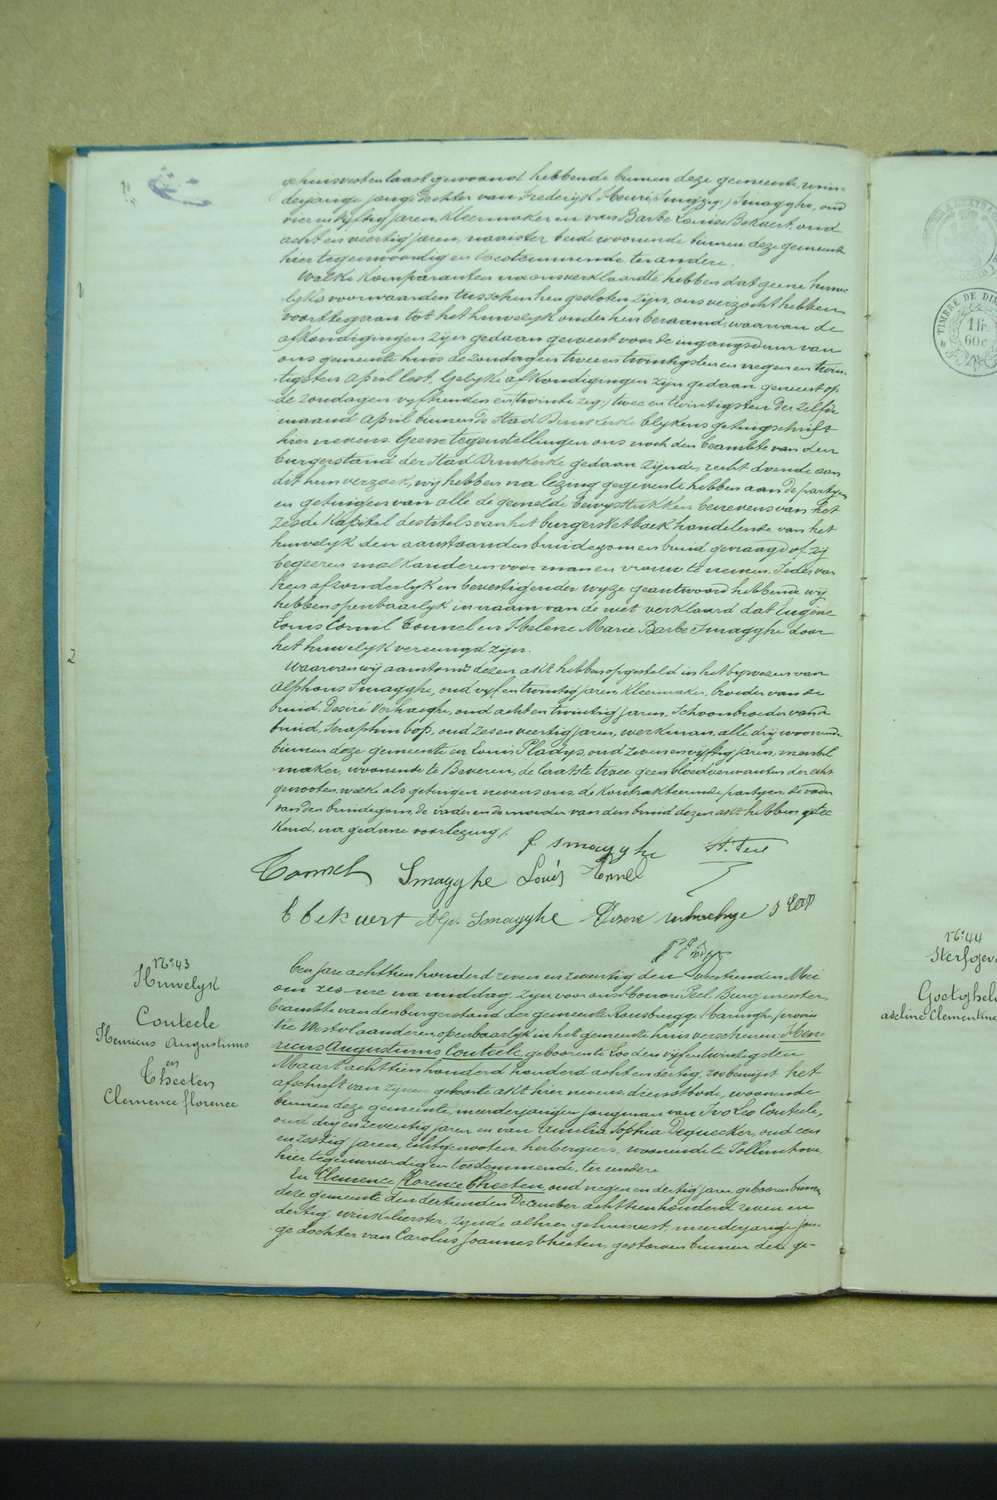 gehuisvest en laast gewoond hebbende binnen deze gemeente, min-
derjarige jonge dochter van Frederijk Henri Smagghe, oud
vier en vijftig jaren, kleermaker en van Barbe Louise Bekaert, oud
acht en veertig jaren, naaister beide woonende binnen deze gemeente
hier tegenwoordig en toestemmende ter andere.
Welke komparanten na ons verklaard te hebben dat geene huwe-
lyks voorwaarden tusschen hen gesloten zijn, ons verzocht hebben
voort te gaan tot het huwelijk onder hen beraamd, waarvan de
afkondigingen zijn gedaan geweest voor de ingangsdeur van
ons gemeente huis de zondagen twee en twintigsten en negen en twin-
tigsten April lest. Gelijke afkondigingen zijn gedaan geweest op
de zondagen vyfthienden en twee en twintigsten der zelfde
maand April binnen de Stad Dunkerke blykens getuigschrift
hier nevens. Geene tegenstellingen ons noch den beambte van den
burgerstand der Stad Dunkerke gedaan zijnde, recht doende aan
dit hun verzoek, wij hebben na lezing gegeven te hebben aan de partyen
en getuigen van alle de gemelde bewysstukken benevens van het
zesde kapitel des titels van het burgerwetboek handelende van het
huwelyk den aanstaanden bruidegom en bruid gevraagd of zij
begeeren malkanderen voor man en vrouw te nemen. Ieder van
hen afzonderlyk en bevestigender wyze geantwoord hebbende wij
hebben openbaarlyk in naam van de wet verklaard dat Eugène
Louis Cornil Tonnel en Helene Marie Barbe Smagghe door
het huwelyk vereenigd zijn.
Waarvan wij aanstonds dezen akt hebben opgesteld in het bijwezen van
Alphons Smagghe, oud vijf en twintig jaren, kleermaker, broeder van de
bruid, Desiré Verhaeghe, oud acht en twintig jaren, schoonbroeder van de
bruid, Seraphin Cop, oud zes en veertig jaren, werkman, alle drij woonende
binnen deze gemeente en Louis Pladys, oud zeven en vyftig jaren, meubel
maker, woonende te Beveren, de laatste twee geen bloedverwanten der echt
genooten, welke als getuigen nevens ons, de kontrakteerende partyen, de vader
van den bruidegom, de vader en de moeder van den bruid dezen akt hebben getee
kend, na gedane voorlezing.
f smagghe H. Peel
Tonnel Smagghe Louis Tonnel
B Bekaert Alp. Smagghe Desiré verhaeghe S Cop
N° 43
Huwelyk
Couteele
Henricus Augustinus
en
Theeten
Clemence florence
Ten jare achttien honderd zeven en zeventig den zeventienden Mei
om zes ure na middag, zijn voor ons Honoré Peel, Burgmeester,
beambte van den burgerstand der gemeente Rousbrugge-Haringhe, provin
tie Westvlaanderen openbaarlyk in het gemeente huis verschenen Hen
ricus Augustinus Couteele, geboren te Loo den vijf en twintigsten
Maart achttien honderd honderd acht en dertig, zoo bewijst het
afschrift van zijnen geboorte akt hier nevens, dienstbode, woonende
binnen deze gemeente, meerderjarigen jongman van Ivo Leo Couteele,
oud drij en zeventig jaren en van Amelia Sophia Dequecker, oud een
en zestig jaren, echtgenooten, herbergiers, woonende te Pollinchove,
hier tegenwoordig en toestemmende, ter eendere
En Clemence Florence Theeten, oud negen en dertig jaren, geboren binnen
deze gemeente den dertienden December achttien honderd zeven en
dertig, winkelierster, zijnde alhier gehuisvest, meerderjarige jon-
ge dochter van Carolus Joannes Theeten, gestorven binnen deze ge-
TIMBRE DE DI
1 fr.
60 c
N° 44
Sterfgeva
Goetghel
Clementine